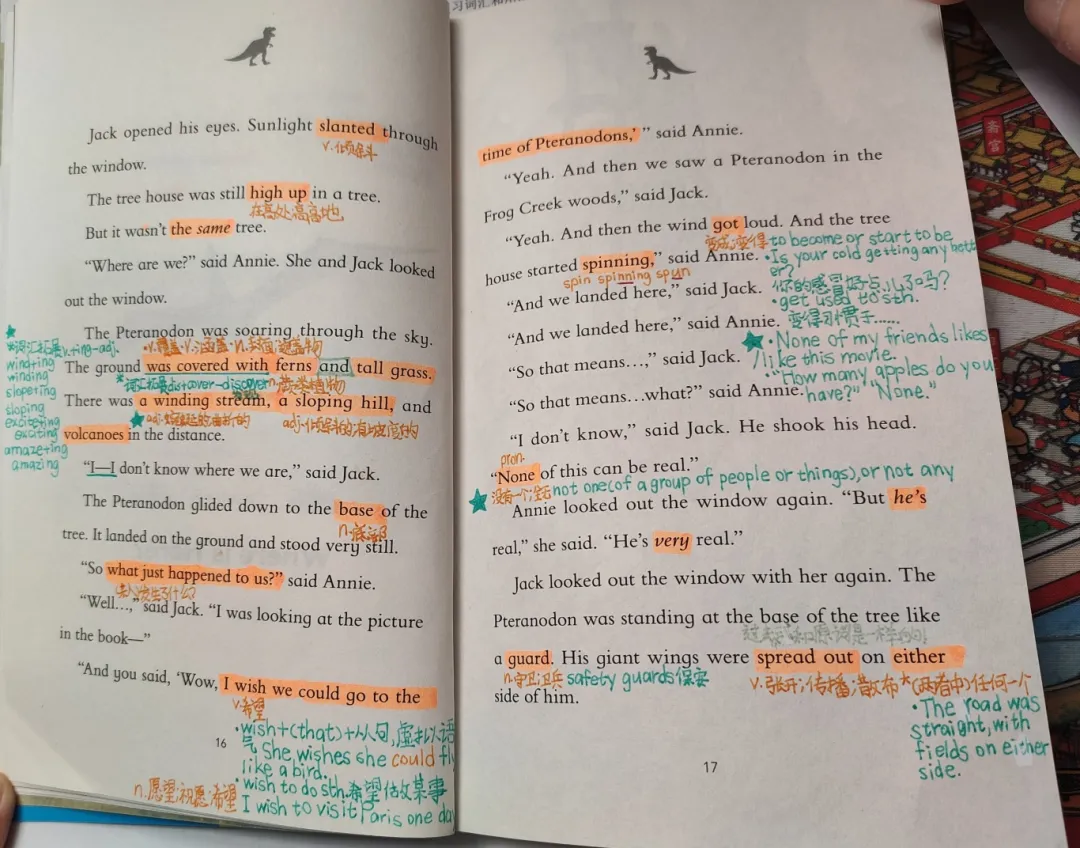 Jack opened his eyes. Sunlight slanted through
v.倾斜
the window.
The tree house was still high up in a tree.
在高处;高高地
But it wasn't the same tree.
"Where are we?" said Annie. She and Jack looked
out the window.
The Pteranodon was soaring through the sky.
*词汇拓展v.+ing-adj.
wind+ing
winding
slope+ing
sloping
excite+ing
exciting
amaze+ing
amazing
•v.覆盖•v.涵盖•n.封面;覆盖物
The ground was covered with ferns and tall grass.
*词汇拓展dis+cover-discover
n.蕨类植物
There was a winding stream, a sloping hill, and
adj.蜿蜒的;曲折的
adj.倾斜的;有坡度的
volcanoes in the distance.
"I—I don't know where we are," said Jack.
The Pteranodon glided down to the base of the
n.底部
tree. It landed on the ground and stood very still.
"So what just happened to us?" said Annie.
发生了什么?
"Well…," said Jack. "I was looking at the picture
in the book—"
"And you said, 'Wow, I wish we could go to the
v.希望
•wish+(that)+从句,虚拟语
气 She wishes she could fl
like a bird.
•wish to do sth.希望做某事
n.愿望;祝愿;希望
I wish to visit Paris one da
16
习词汇和
time of Pteranodons,' " said Annie.
"Yeah. And then we saw a Pteranodon in the
Frog Creek woods," said Jack.
"Yeah. And then the wind got loud. And the tree
变成;变得 to become or start to be
house started spinning," said Annie.
spin spinning spun
•Is your cold getting any bett
er?
你的感冒好点儿了吗?
"And we landed here," said Jack.
•get used to sth.
"And we landed here," said Annie.
变得习惯于……
"So that means…," said Jack.
•None of my friends likes
/like this movie.
"So that means…what?" said Annie.
•"How many apples do you
have?" "None."
"I don't know," said Jack. He shook his head.
pron.
"None of this can be real."
没有一个;毫无 not one(of a group of people or things),or not any
Annie looked out the window again. "But he's
real," she said. "He's very real."
Jack looked out the window with her again. The
Pteranodon was standing at the base of the tree like
a guard. His giant wings were spread out on either
n.守卫;卫兵 safety guards保安
v.张开;传播;散布
*(两者中)任何一个
side of him.
•The road was
straight, with
fields on either
side.
17
斋宫